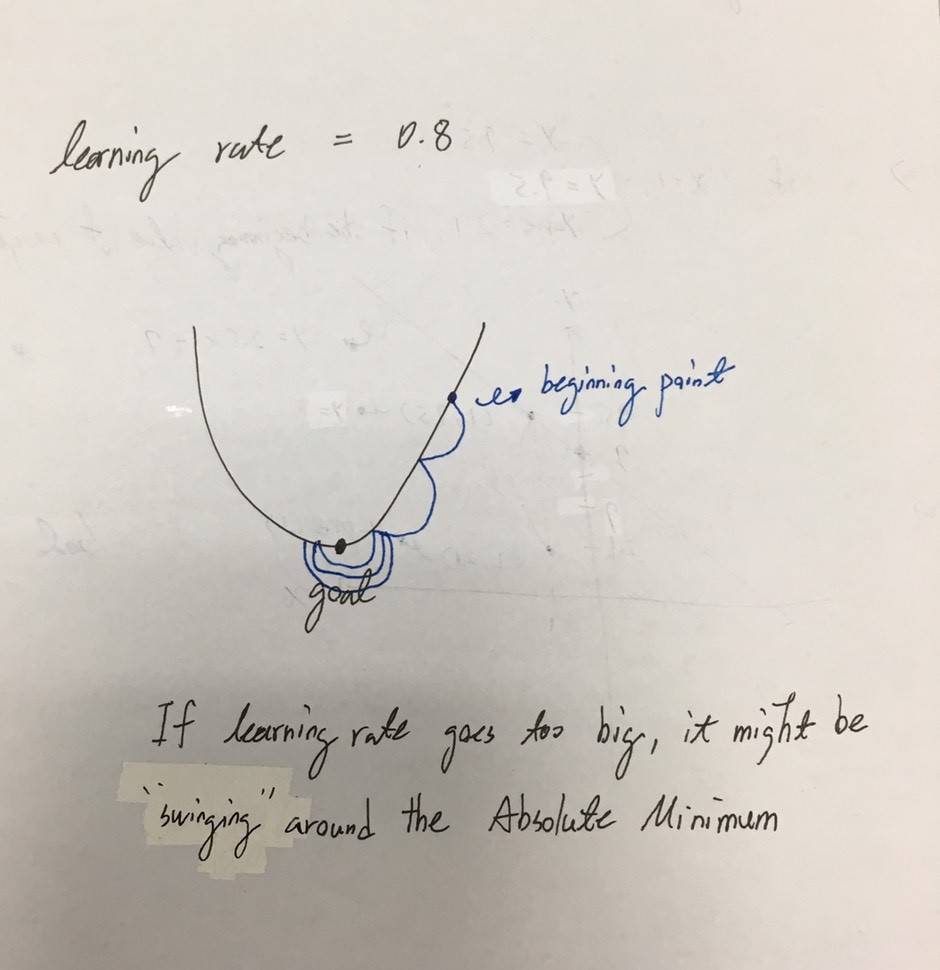 learning rate = 0.8
beginning point
goal
If learning rate goes too big, it might be
"swinging" around the Absolute Minimum